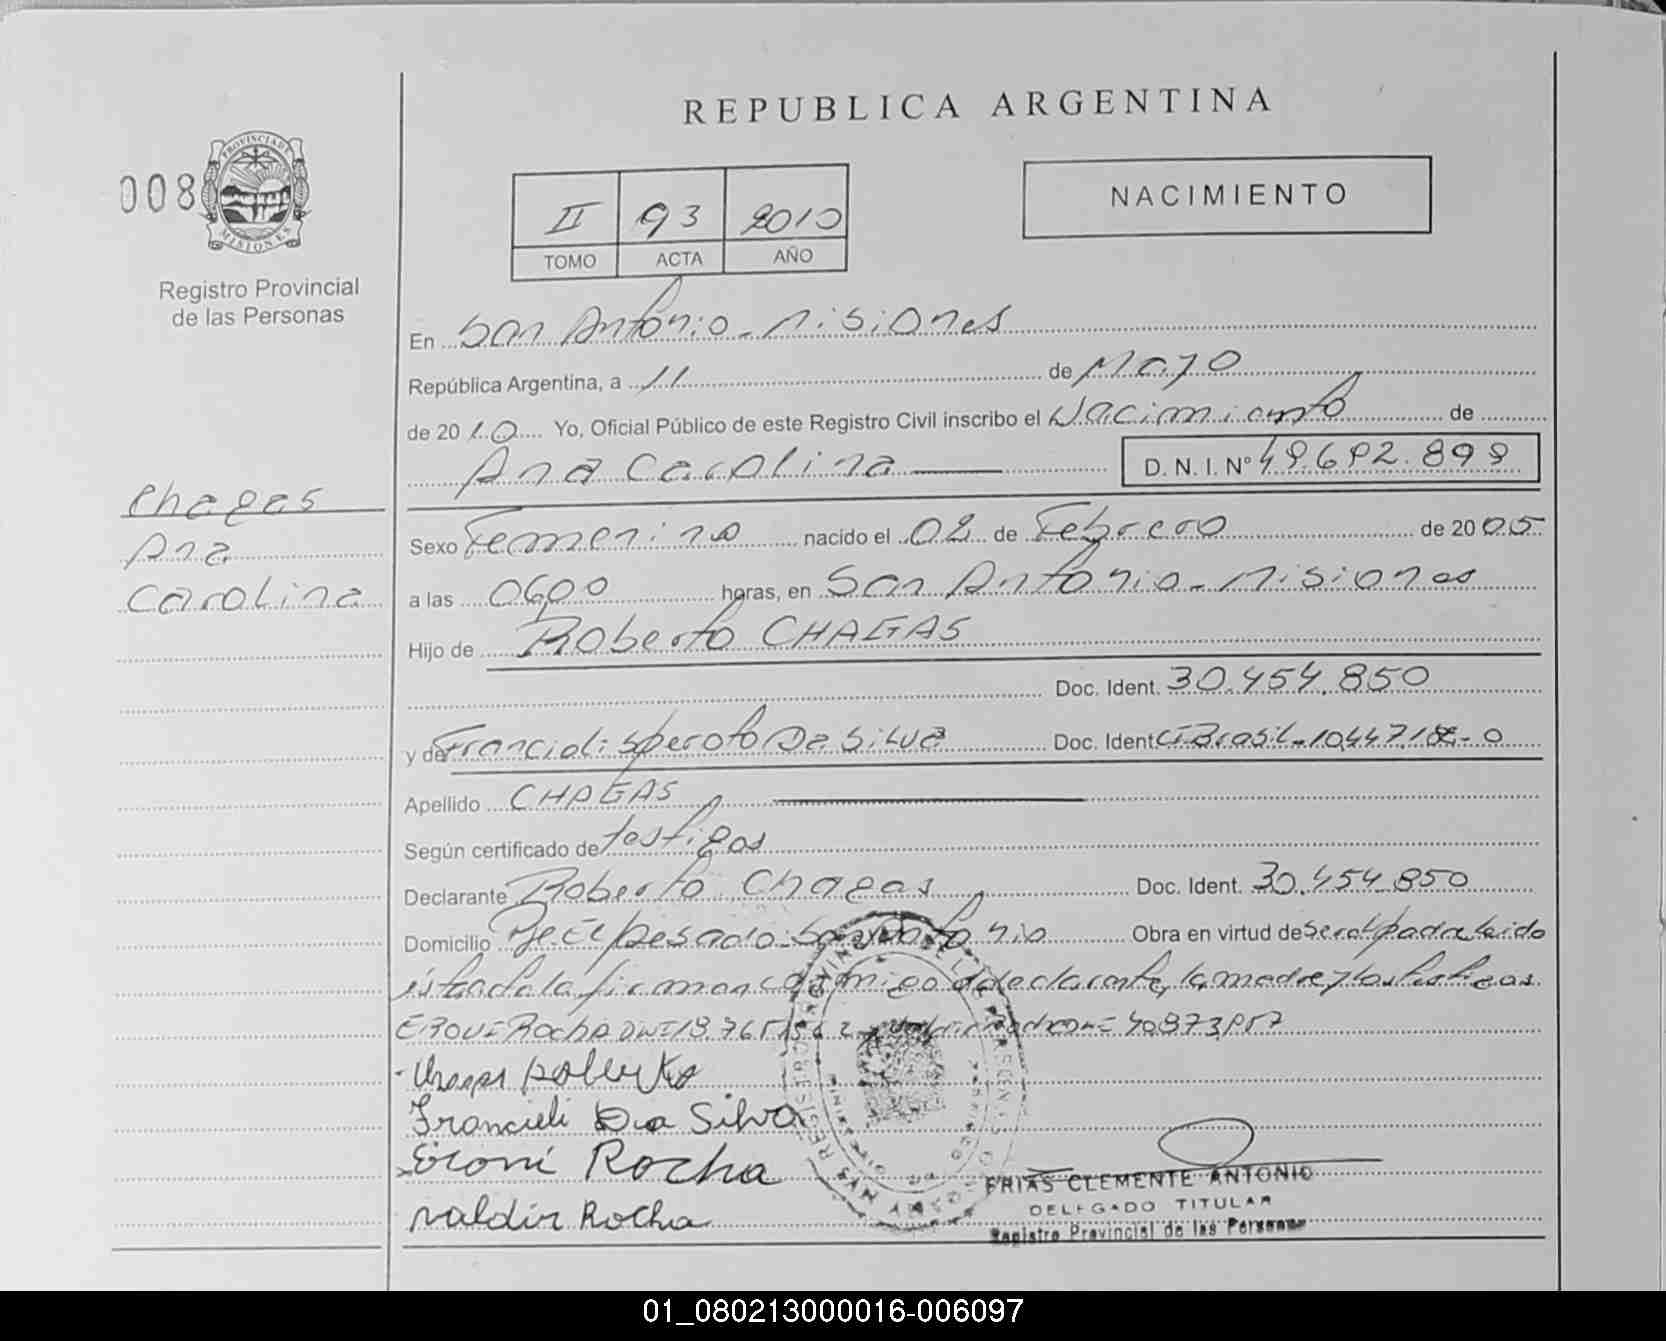 REPUBLICA ARGENTINA
008
PROVINCIA DE MISIONES
Registro Provincial
de las Personas
II 93 2010
TOMO ACTA AÑO
NACIMIENTO
En San Antonio - Misiones
República Argentina, a 11 de Mayo
de 2010 Yo, Oficial Público de este Registro Civil inscribo el Nacimiento de
Ana Carolina D. N. I. Nº 49.692.899
Chagas
Ana
Carolina
Sexo Femenino nacido el 02 de Febrero de 2005
a las 0600 horas, en San Antonio - Misiones
Hijo de Roberto CHAGAS
Doc. Ident. 30.454.850
y de Francieli Da Silva Doc. Ident CI Brasil - 10.447.18
Apellido CHAGAS
Según certificado de testigos
Declarante Roberto Chagas Doc. Ident. 30.454.850
Domicilio Pje El Pesado San Antonio Obra en virtud de ser el padre leido
firman conmigo el declarante, la madre y los testigos
Rocha DNI 18.765 40.873.957
Chagas Roberto
Francieli Da Silva
Eroni Rocha
Valdir Rocha
FRIAS CLEMENTE ANTONIO
DELEGADO TITULAR
Registro Provincial de las Personas
01_080213000016-006097